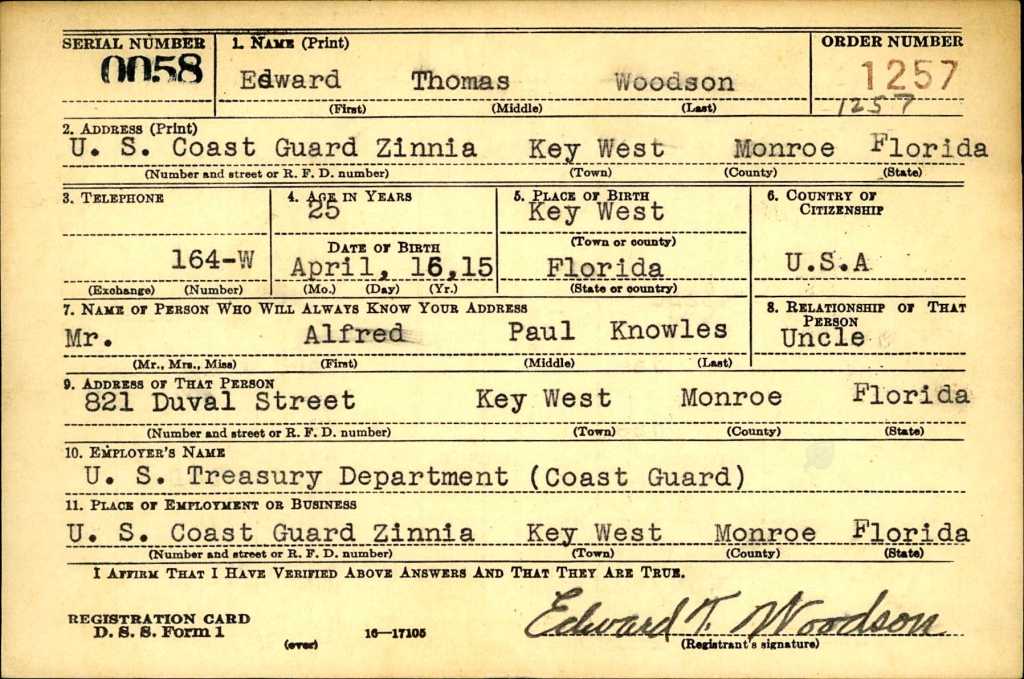 SERIAL NUMBER 1. NAME (Print) ORDER NUMBER
0058 Edward Thomas Woodson 1257
(First) (Middle) (Last) 1257
2. ADDRESS (Print)
U. S. Coast Guard Zinnia Key West Monroe Florida
(Number and street or R. F. D. number) (Town) (County) (State)
3. TELEPHONE 4. AGE IN YEARS 5. PLACE OF BIRTH 6. COUNTRY OF CITIZENSHIP
25 Key West
DATE OF BIRTH (Town or county)
164-W April, 16,15 Florida U.S.A
(Exchange) (Number) (Mo.) (Day) (Yr.) (State or country)
7. NAME OF PERSON WHO WILL ALWAYS KNOW YOUR ADDRESS 8. RELATIONSHIP OF THAT PERSON
Mr. Alfred Paul Knowles Uncle
(Mr., Mrs., Miss) (First) (Middle) (Last)
9. ADDRESS OF THAT PERSON
821 Duval Street Key West Monroe Florida
(Number and street or R. F. D. number) (Town) (County) (State)
10. EMPLOYER'S NAME
U. S. Treasury Department (Coast Guard)
11. PLACE OF EMPLOYMENT OR BUSINESS
U. S. Coast Guard Zinnia Key West Monroe Florida
(Number and street or R. F. D. number) (Town) (County) (State)
I AFFIRM THAT I HAVE VERIFIED ABOVE ANSWERS AND THAT THEY ARE TRUE.
REGISTRATION CARD Edward T. Woodson
D. S. S. Form 1 (over) 16—17105 (Registrant's signature)